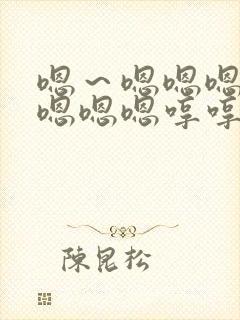 嗯～嗯嗯嗯
嗯嗯嗯哼哼
陳昆松